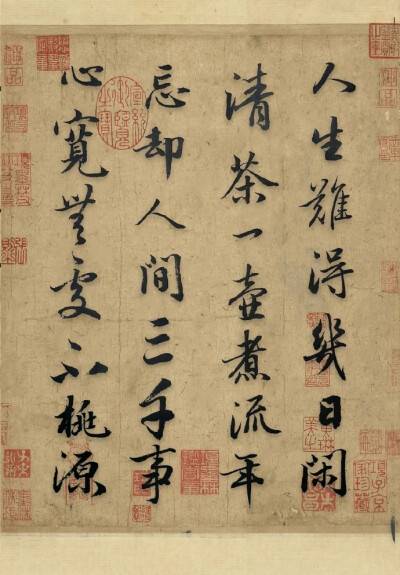 人生難得幾日閑
清茶一壺煮流年
忘却人間三千事
心寬無處不桃源